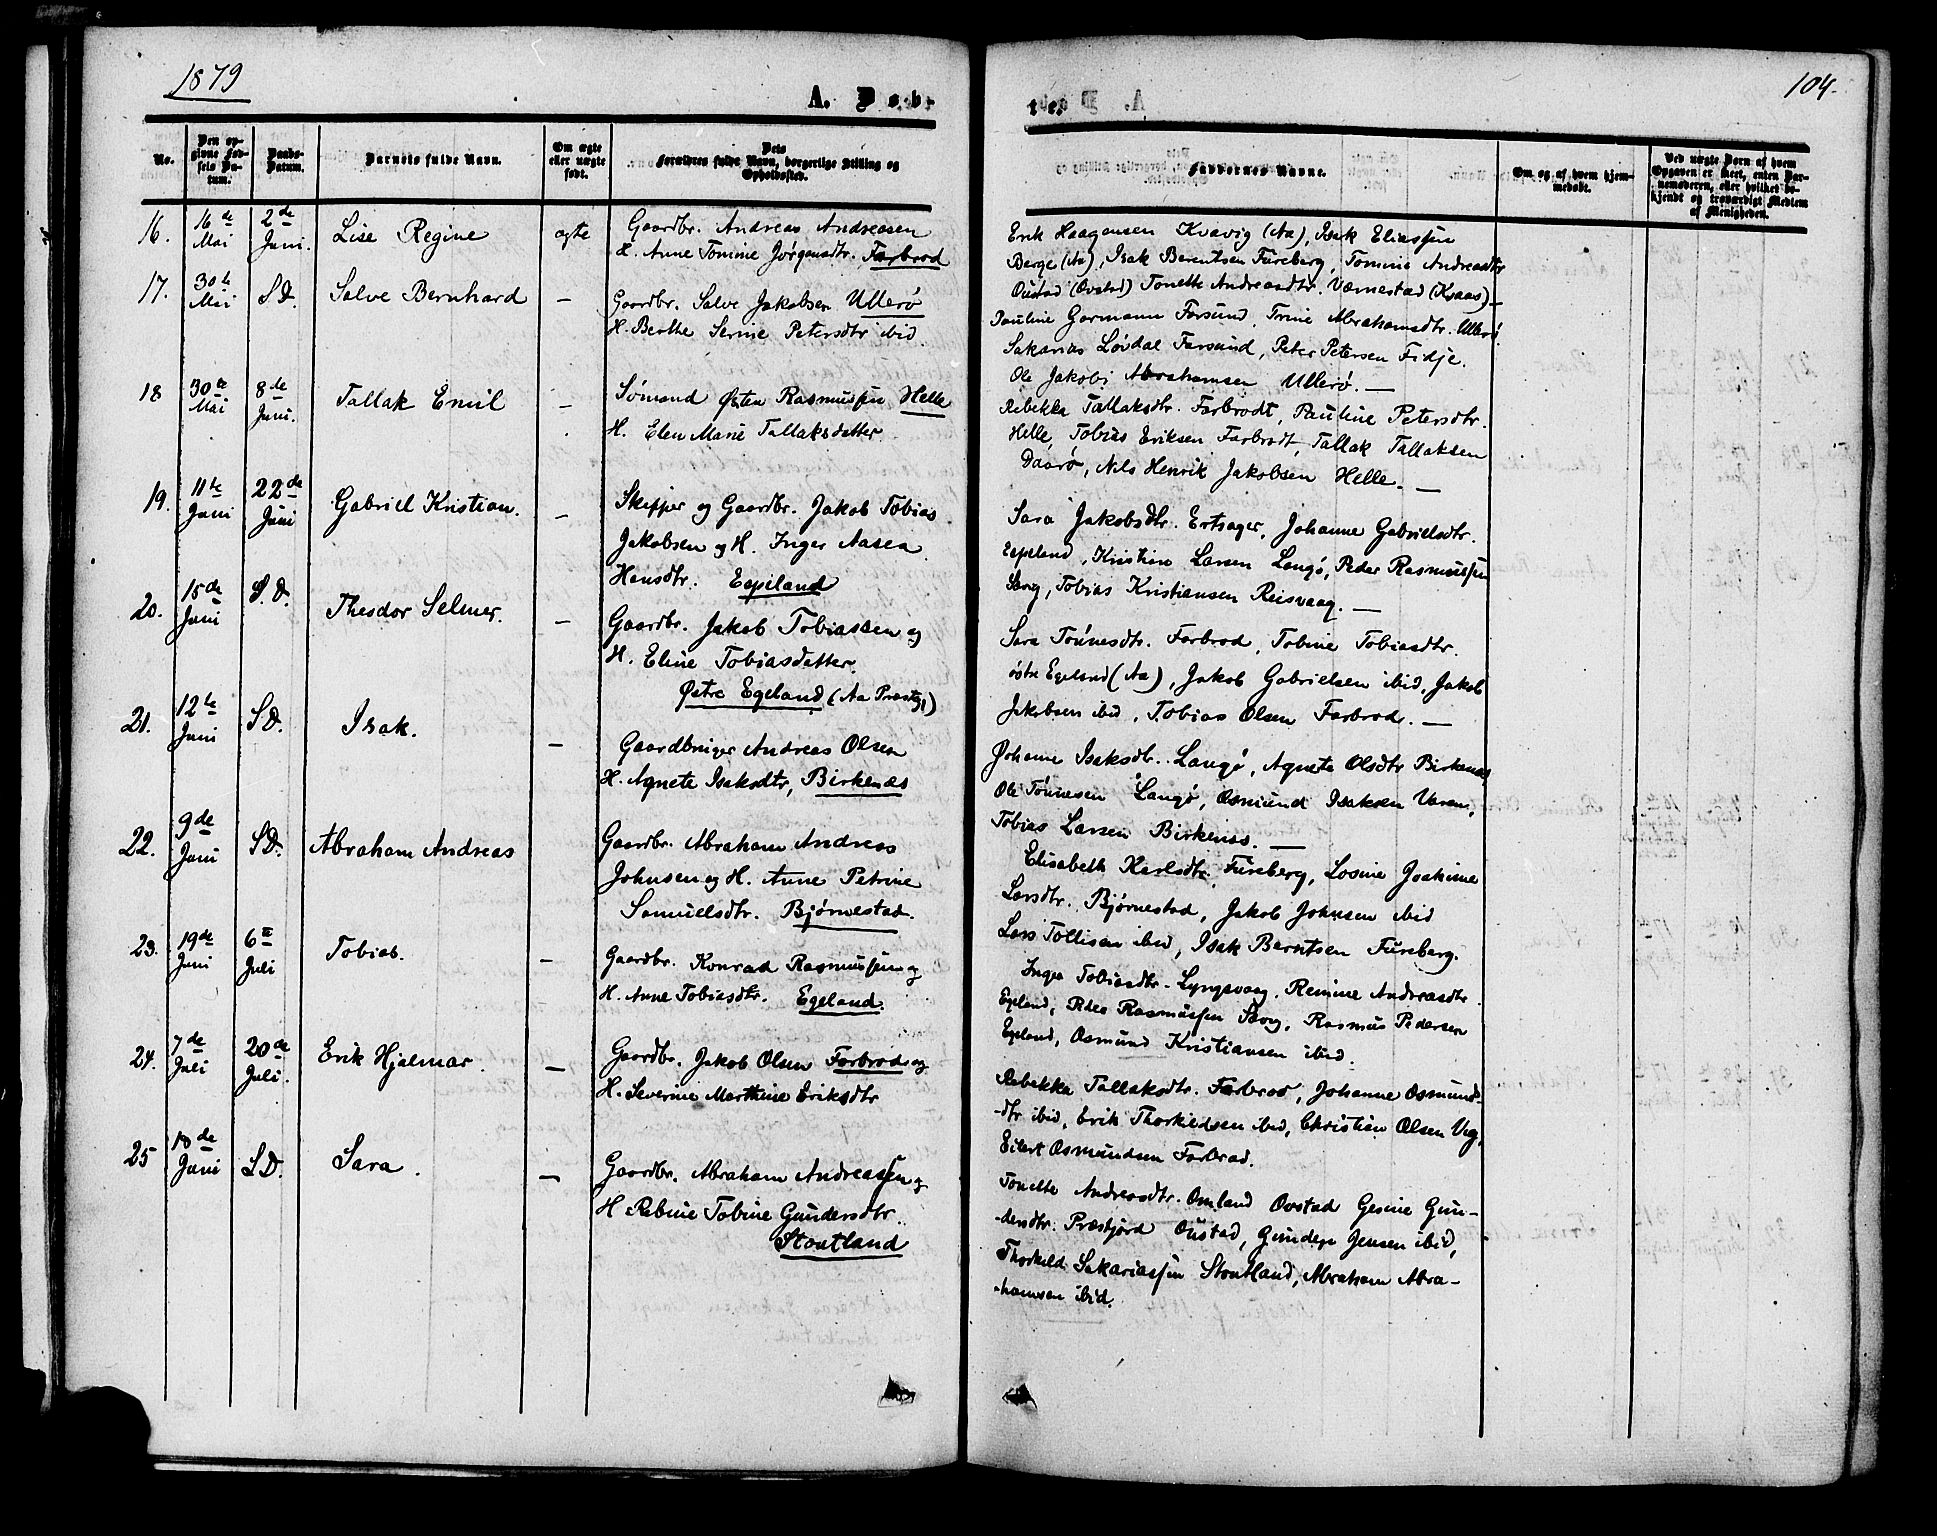 1879
A. Døbte.
104.
No.
Den opgivne Fødsels Datum.
Daabs-Datum.
Barnets fulde Navn.
Om ægte eller uægte født.
Dets Forældres fulde Navn, borgerlige Stilling og Opholdssted.
Faddernes Navne.
Om og af hvem hjemmedøbt.
Ved uægte Børn af hvem Opgaven er skeet, enten Barnemoderen, eller hvilket bekjendt og troværdigt Medlem af Menigheden.
16. 16de Mai 2de Juni. Lise Regine ægte
Gaardbr. Andreas Andreassen
H. Anne Tomine Jørgensdtr. Farbrod
Erik Haagensen Kvavig (Aa), Isak Eliassen
Berge (Aa), Isak Berentsen Fureberg, Tomine Andreasdtr
Oustad (Ovstad) Tonette Andreasdtr. Væmestad (Kvaas) —
17. 30te Mai S.D. Salve Bernhard —
Gaardbr. Salve Jakobsen Ullerø
H. Berthe Serine Petersdtr ibid.
Pauline Gormann Farsund, Trine Abrahamsdtr. Ullerø.
Sakarias Løvdal Farsund, Peter Petersen Fidje.
Ole Jakobi Abrahamsen Ullerø. —
18 30te Mai 8de Juni. Tallak Emil —
Sømand Østen Rasmussen Helle
H. Elen Marie Tallaksdatter
Rebekka Tallaksdtr. Farbrodt, Pauline Petersdtr.
Helle, Tobias Eriksen Farbrodt, Tallak Tallaksen
Daarø, Nils Henrik Jakobsen Helle. —
19. 11te Juni 22de Juni Gabriel Kristian. —
Skipper og Gaardbr. Jakob Tobias
Jakobsen og H. Inger Aasea
Hansdtr. Egeland
Sara Jakobsdtr. Ertsager, Johanne Gabrielsdtr.
Egeland, Kristian Larsen Langø, Peder Rasmussen
Tobias Kristiansen Reisvaag. —
20. 15de Juni S.D. Theodor Selmer. —
Gaardbr. Jakob Tobiassen og
H. Eline Tobiasdatter.
Østre Egeland (Aa Præstgj)
Sara Tønnesdtr. Farbrod, Tobine Tobiasdtr.
østre Egeland (Aa), Jakob Gabrielsen ibid, Jakob
Jakobsen ibid, Tobias Olsen Farbrod. —
21. 12te Juni S.D. Isak. —
Gaardbruger Andreas Olsen
H. Agnete Isaksdtr, Birkenæs
Johanne Isaksdtr. Langø, Agnete Olsdtr Birkenæs,
Ole Tønnesen Langø, Osmund Isaksen
Tobias Larsen Birkenæs. —
22. 9de Juni S.D. Abraham Andreas
Gaardbr. Abraham Andreas
Johnsen og H. Anne Petrine
Samuelsdtr. Bjørnestad.
Elisabeth Karlsdtr. Fureberg, Losine Joakime
Larsdtr. Bjørnestad, Jakob Johnsen ibid
Lars Tollisen ibid, Isak Berntsen Fureberg.
23. 19de Juni 6te Juli Tobias. —
Gaardbr. Konrad Rasmussen og
H. Anne Tobiasdtr. Egeland.
Inger Tobiasdtr. Lyngsvaag, Remine Andreasdtr
Egeland, Peder Rasmussen Rasmus Pedersen
Egeland, Osmund Kristiansen ibid.
24. 7de Juli 20de Juli. Erik Hjalmar. —
Gaardbr. Jakob Olsen Farbrod og
H. Severine Marthine Eriksdtr
Rebekka Tallaksdtr. Farbrod, Johanne Osmunds-
-dtr ibid, Erik Thorkildsen ibid, Christian Olsen
Eilert Osmundsen Farbrod.
25 18de Juni S.D. Sara. —
Gaardbr. Abraham Andreassen og
H. Rebine Tobine Gundersdtr.
Stoutland
Tonette Andreasdtr. Omland Ovstad Gesine Gun-
-dersdtr. Præstjord Oustad, Gunder Jensen ibid,
Thorkild Sakariassen Stoutland, Abraham Abra-
-hamsen ibid.